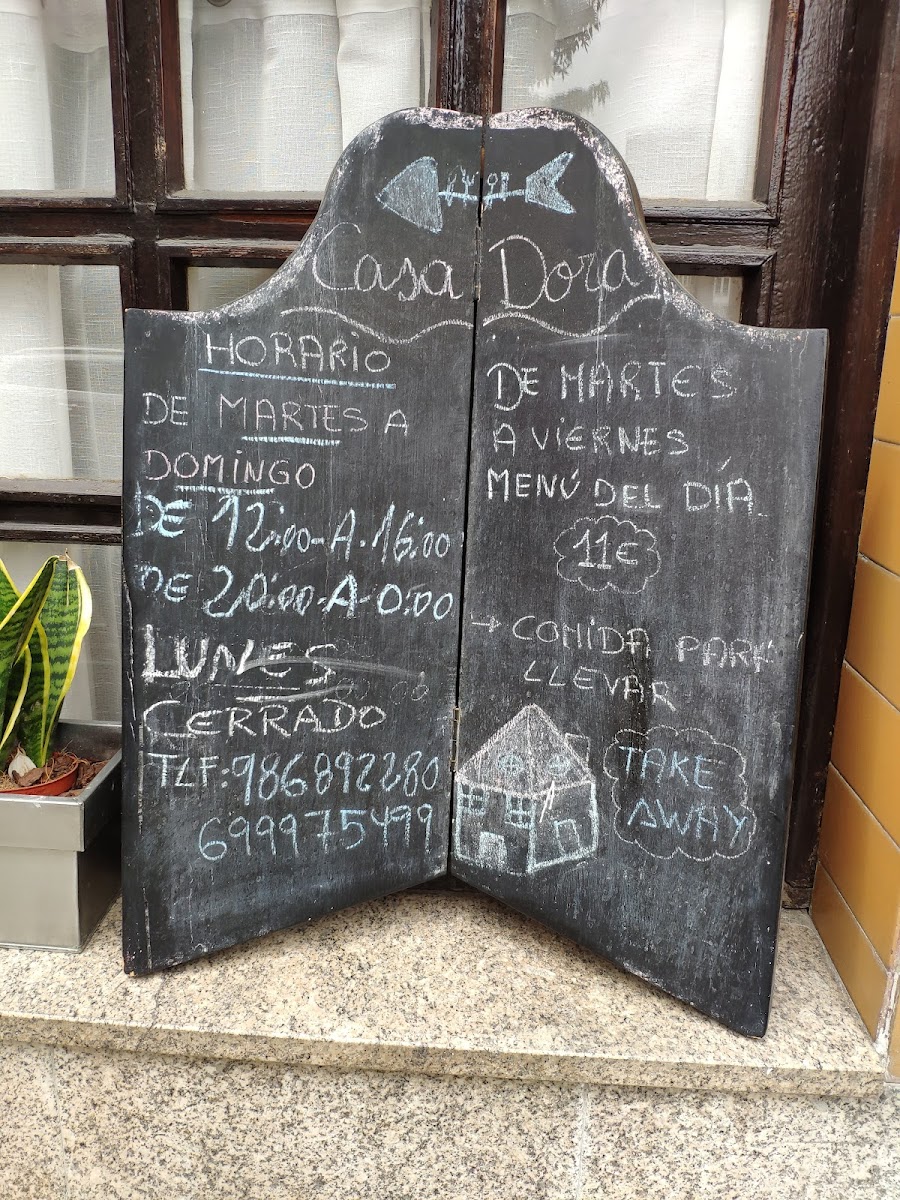 Casa Dora
HORARIO
DE MARTES A
DOMINGO
DE 12:00-A-16:00
DE 20:00-A-0:00
LUNES
CERRADO
TLF:986892280
699975499
DE MARTES
A ViERNES
MENÚ DEL DÍA
11€
→ COMIDA PARA
LLEVAR
TAKE
AWAY